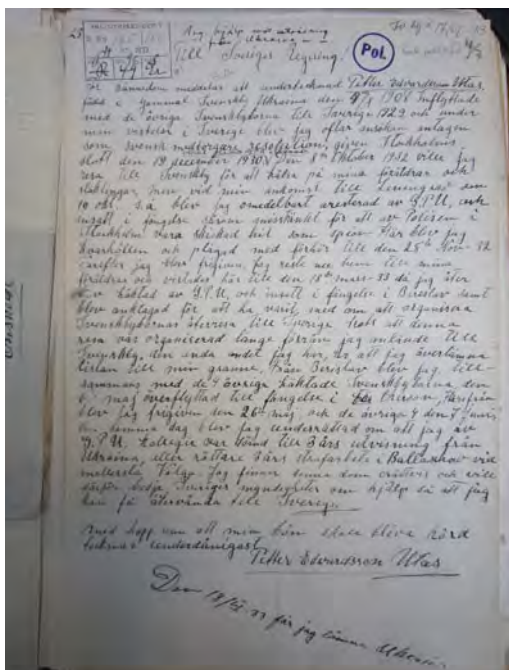 25
Ang. hjälp mot utvisning
från Ukraina
Till Sveriges Regering!
Pol.
Härmed meddelas att undertecknad Petter Edvardsson Utas,
född i Gammal Svenskby Ukraina den 1908 Inflyttade
med de övriga Svenskbyborna till Sverige 1929 och under
min vistelse i Sverige blev jag efter ansökan antagen
som svensk medborgare given Stockholms
slott den 19 december 1930. Den 8de Oktober 1932 ville jag
resa till Svenskby för att hälsa på mina föräldrar och
släktingar, men vid min ankomst till Leningrad den
10 okt. s.å. blev jag omedelbart arresterad av G.P.U. och
insatt i fängelse såsom misstänkt för att av Polisen i
Stockholm vara skickad hit som spion. Här blev jag
kvarhållen och plågad med förhör till den 28de Nov. 32
därefter jag blev frigiven. Jag reste nu hem till mina
föräldrar och vistades här till den 18de mars 33 då jag åter
blev häktad av G.P.U. och insatt i fängelse i Berislav samt
blev anklagad för att ha varit med om att organisera
Svenskbybornas återresa till Sverige trots att denna
resa var organiserad långe förrän jag anlände till
Svenskby, den enda
listan till min granne. Från Berislav blev jag till-
sammans med de 4 övrige häktade Svenskbyborna den
6 maj överflyttad till fängelse i Cherson, Härifrån
blev jag frigiven den 26de maj och de övriga 4 den 7 juni
samma dag blev jag underrättad om att jag av
G.P.U. Kollegie var dömd till 3 års utvisning från
Ukraina, eller rättare 3 års straffarbete i vid
mellersta Volga. Jag finner denna dom orättvis och vill
därför bedja Sveriges myndigheter om hjälp så att jag
kan få återvända till Sverige
Med hopp om att min bön skall bliva hörd
tecknas i underdånigast
Petter Edvardsson Utas
Den 18/VI-33 får jag lämna Ukraina